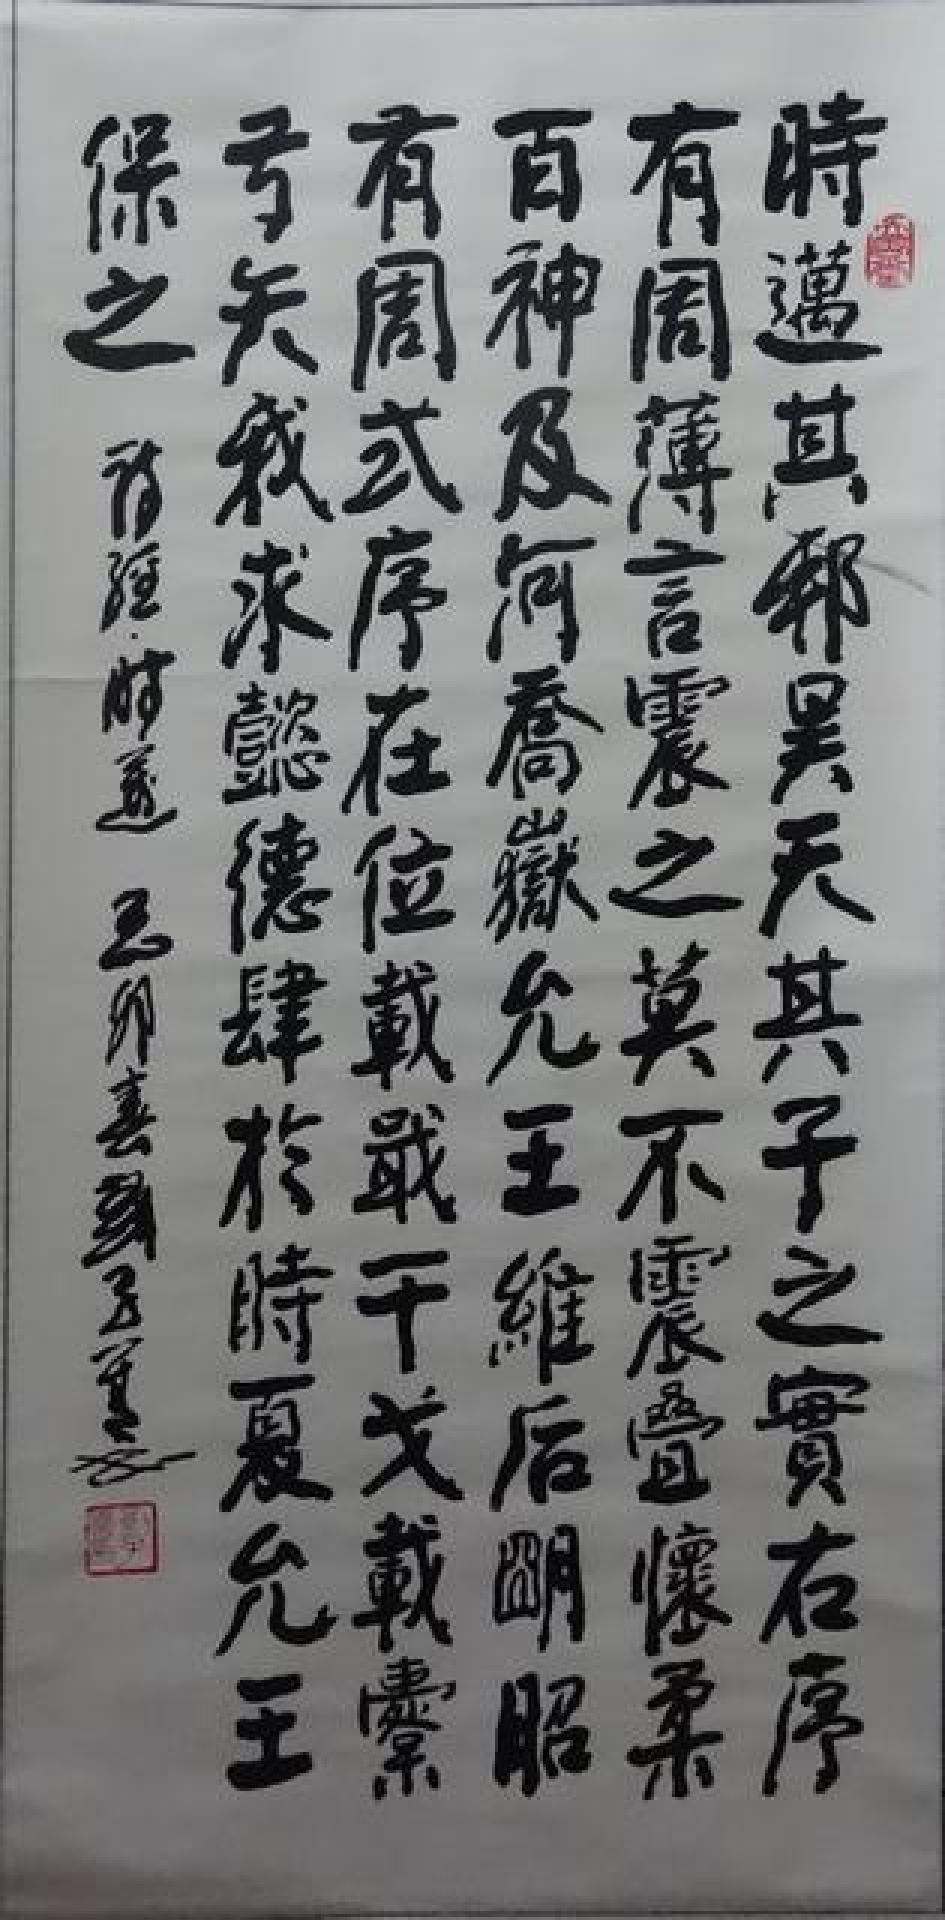 時邁其邦昊天其子之實右序
有周薄言震之莫不震疊懷柔
百神及河喬嶽允王維后明昭
有周式序在位載戢干戈載櫜
弓矢我求懿德肆於時夏允王
保之
詩經·時邁 己卯春